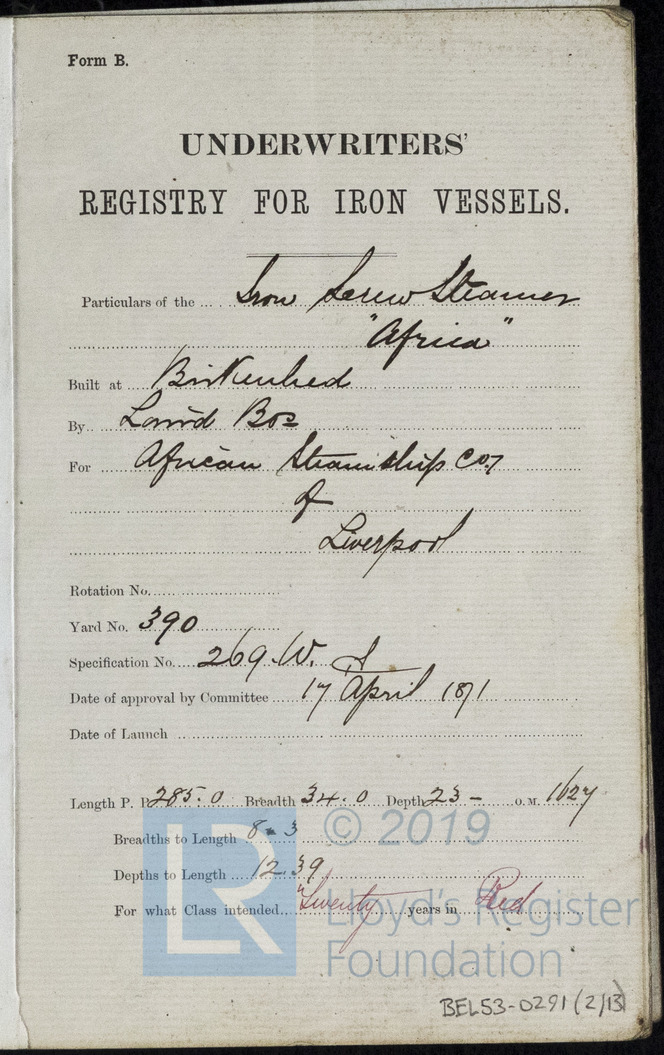 Form B.
UNDERWRITERS'
REGISTRY FOR IRON VESSELS.
Particulars of the Iron Screw Steamer
"Africa"
Built at Birkenhed
By Laird Bos
For African Steamship Co.,
of
Liverpool
Rotation No.
Yard No. 390
Specification No. 269. W.
Date of approval by Committee 17 April 1871
Date of Launch
Length P. P. 285.0 Breadth 34.0 Depth 23 - O.M. 1627
Breadths to Length 8.3
Depths to Length 12.39
For what Class intended "Twenty years in Red
© 2019
LR
Lloyd's Register
Foundation
BEL53-0291 (2/13)